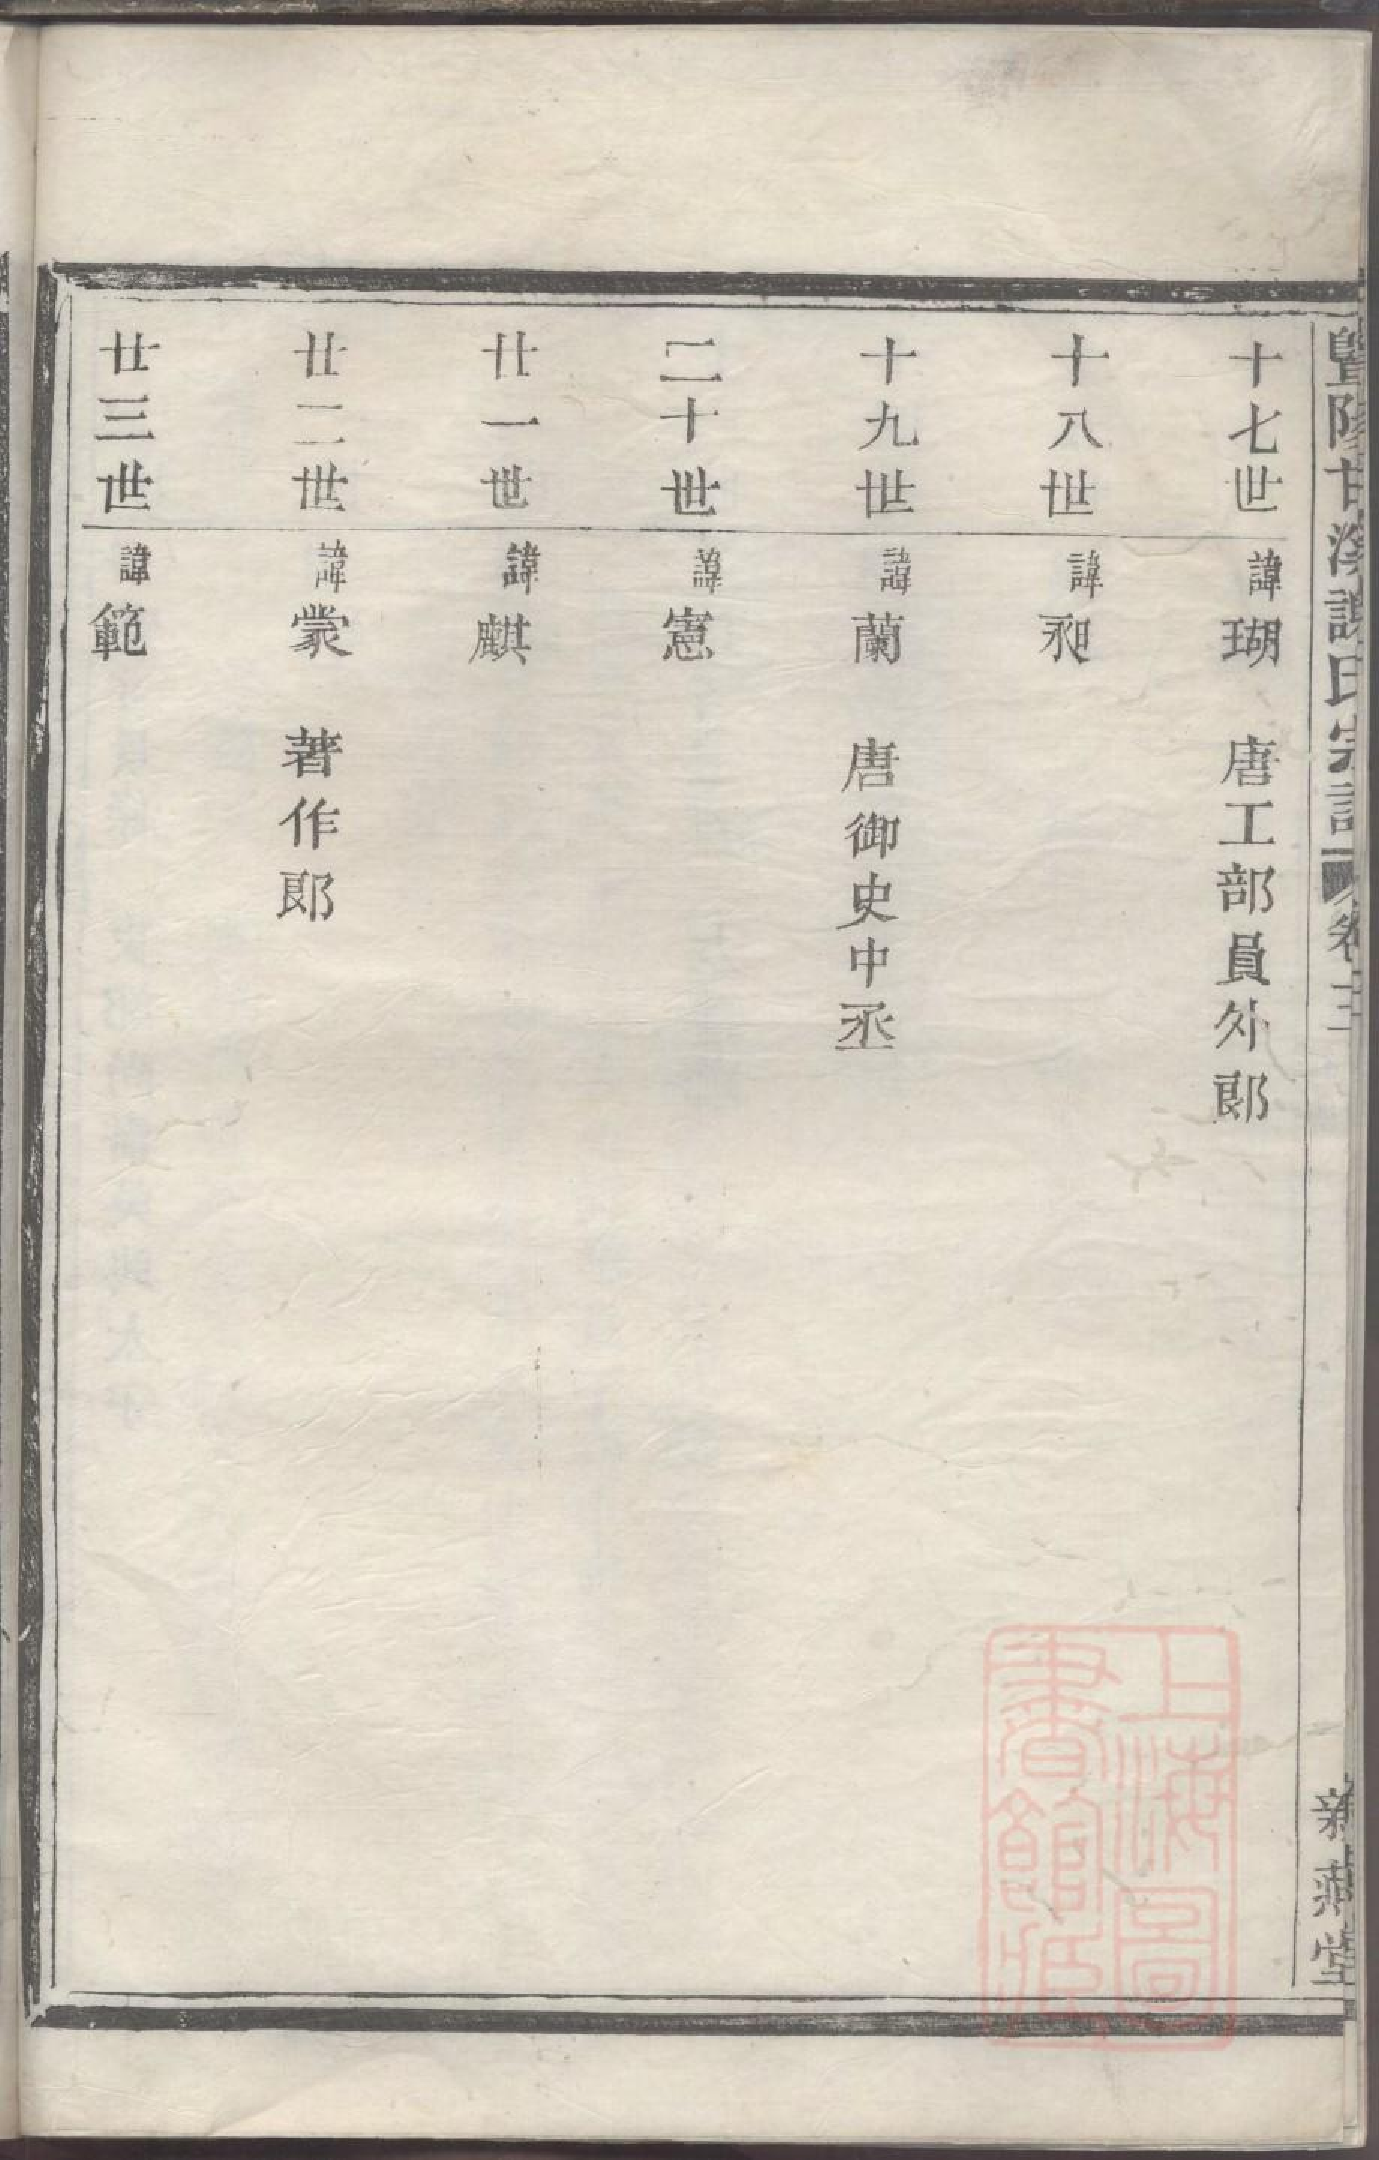 暨陽甘溪謝氏宗譜 卷三
十七世 諱瑚 唐工部員外郎
十八世 諱昶
十九世 諱蘭 唐御史中丞
二十世 諱憲
廿一世 諱麒
廿二世 諱蒙 著作郎
廿三世 諱範
新燕堂
上海圖
書館藏